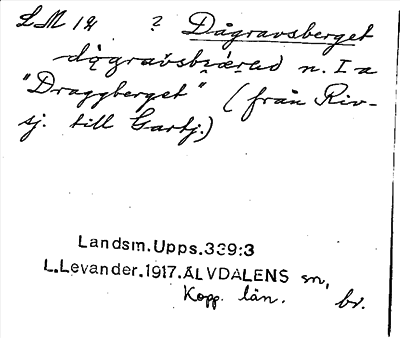 LM 12 ? Dågravsberget
dågravsbiærad n. I a
"Draggberget" (från Riv-
sj. till Gartj.)
Landsm.Upps.339:3
L.Levander.1917.ÄLVDALENS sn,
Kopp. län. br.